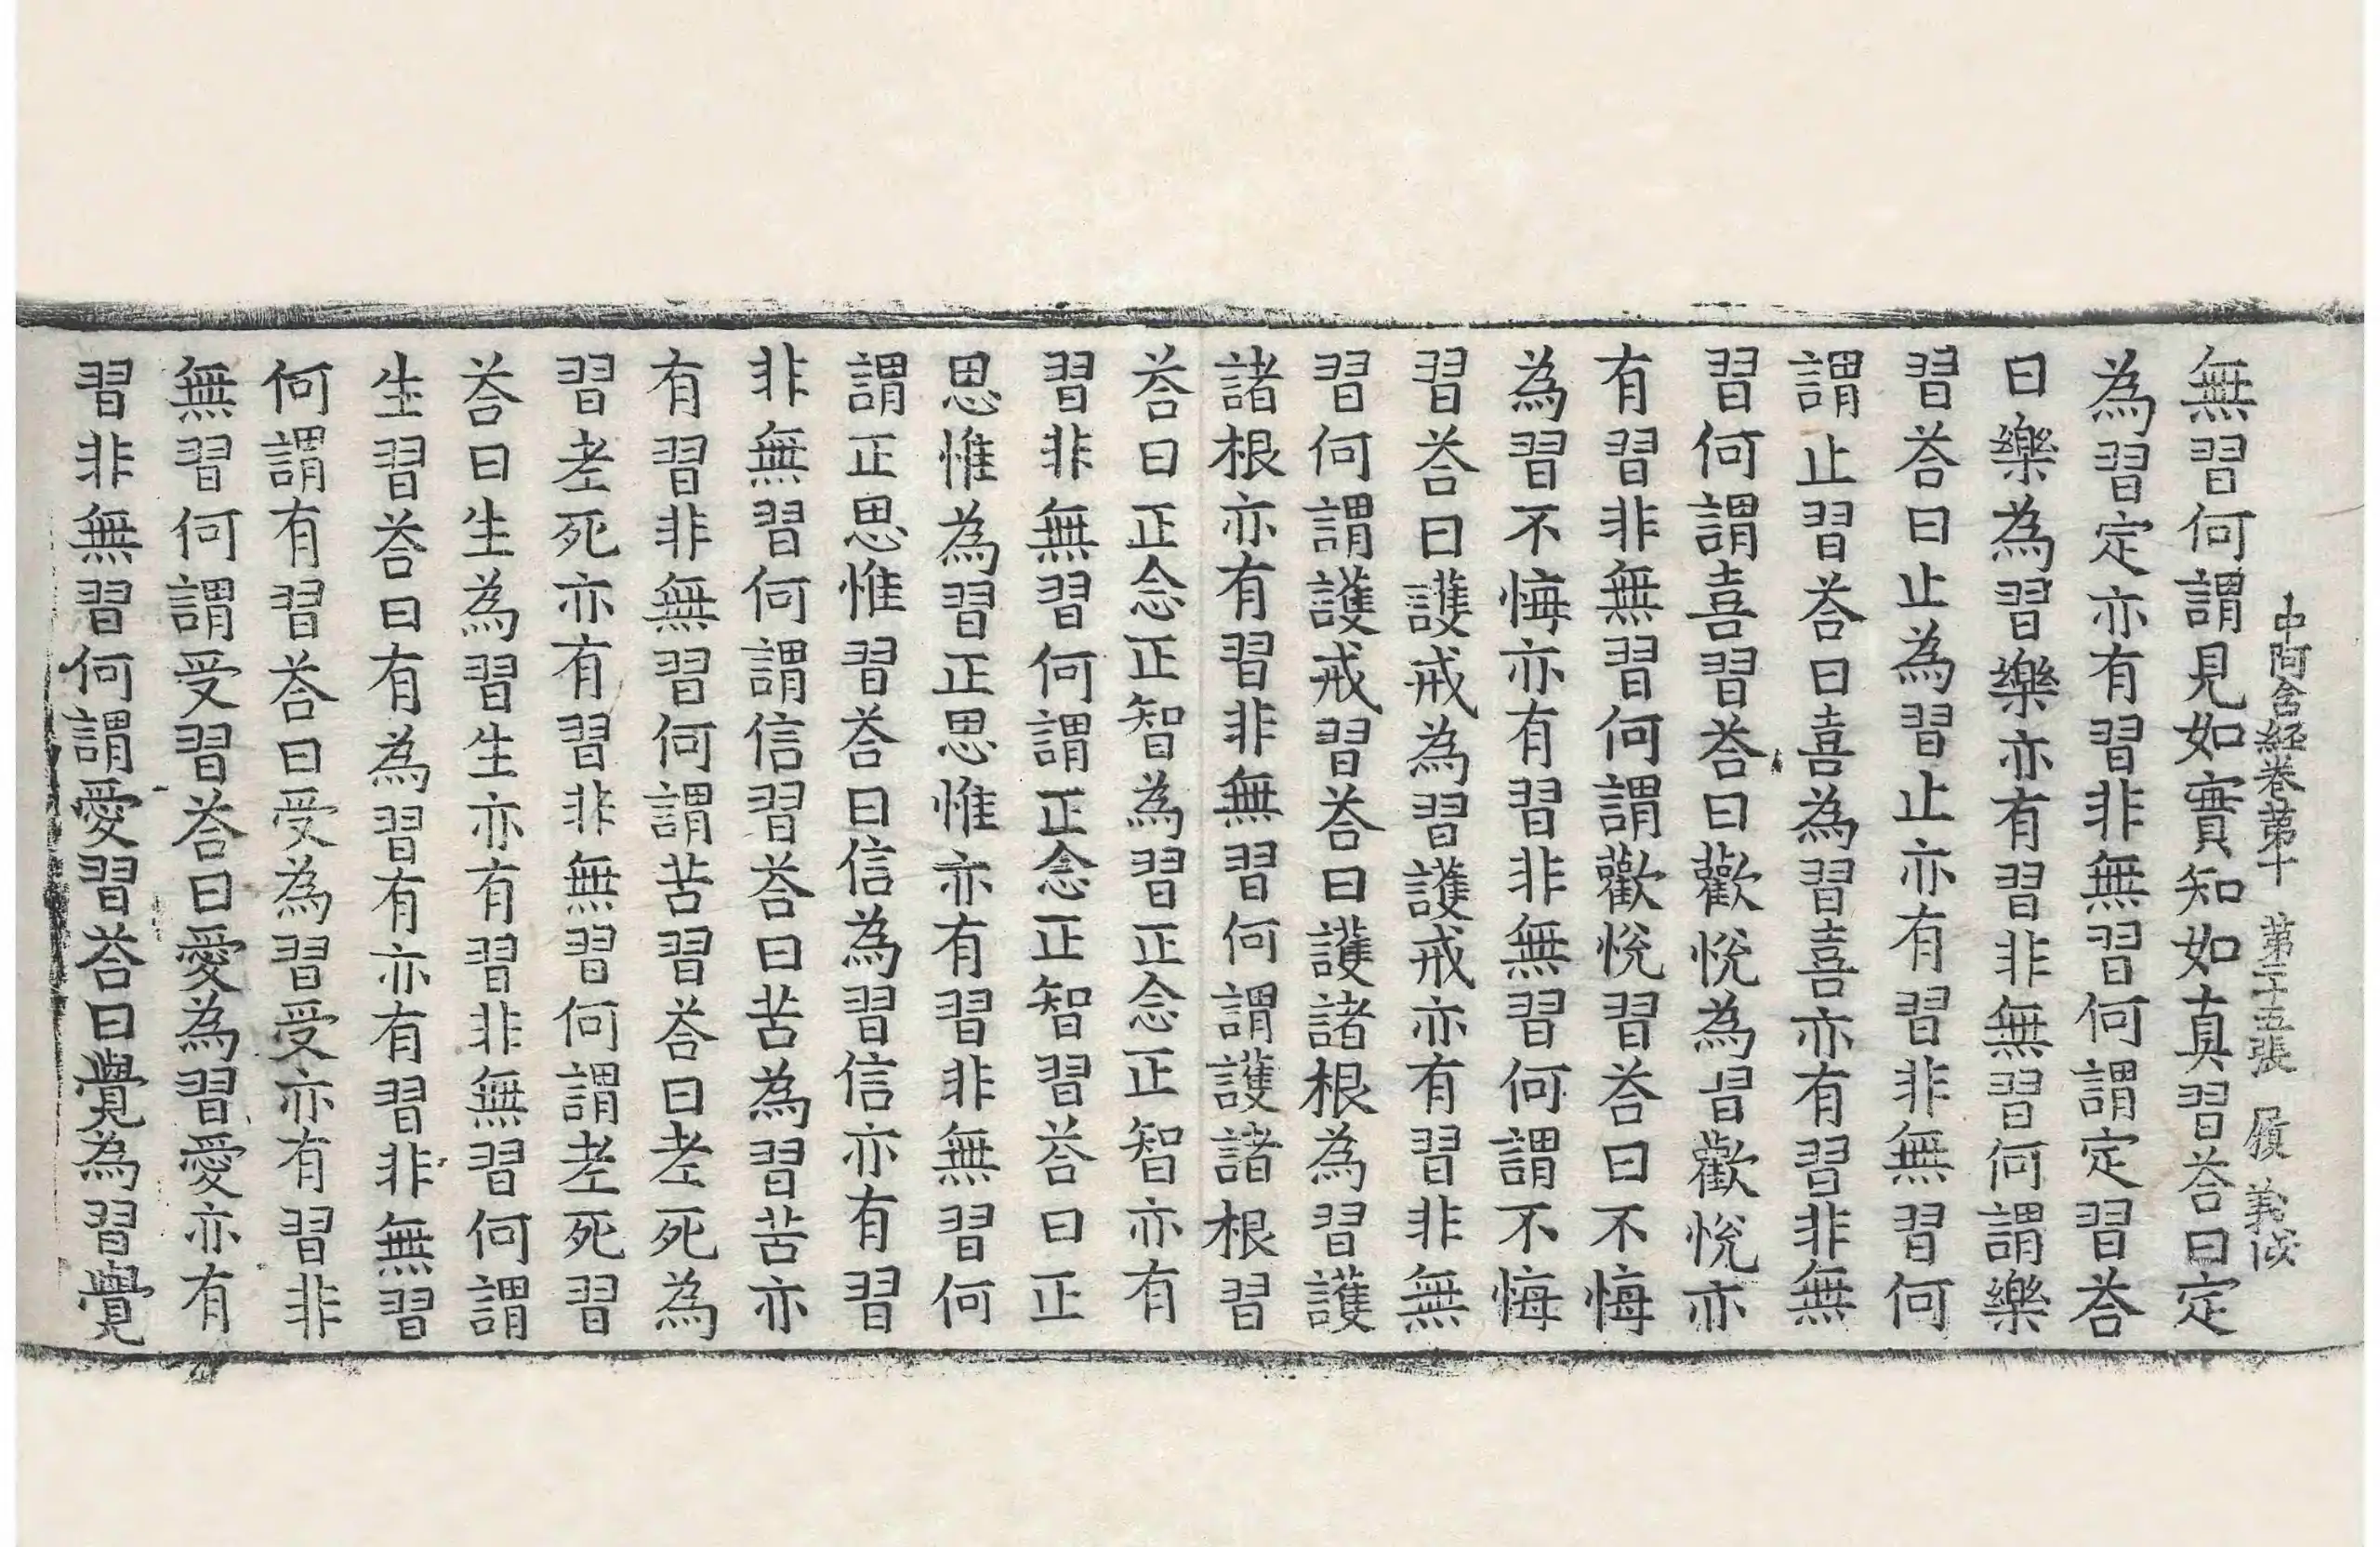 中阿含経卷第十 第二十五張 履
無習何謂見如實知如真習荅曰定
為習定亦有習非無習何謂定習荅
曰樂為習樂亦有習非無習何謂樂
習荅曰止為習止亦有習非無習何
謂止習荅曰喜為習喜亦有習非無
習何謂喜習荅曰歡悅為習歡悅亦
有習非無習何謂歡悅習荅曰不悔
為習不悔亦有習非無習何謂不悔
習荅曰護戒為習護戒亦有習非無
習何謂護戒習荅曰護諸根為習護
諸根亦有習非無習何謂護諸根習
荅曰正念正智為習正念正智亦有
習非無習何謂正念正智習荅曰正
思惟為習正思惟亦有習非無習何
謂正思惟習荅曰信為習信亦有習
非無習何謂信習荅曰苦為習苦亦
有習非無習何謂苦習荅曰老死為
習老死亦有習非無習何謂老死習
荅曰生為習生亦有習非無習何謂
生習荅曰有為習有亦有習非無習
何謂有習荅曰受為習受亦有習非
無習何謂受習荅曰愛為習愛亦有
習非無習何謂愛習荅曰覺為習覺